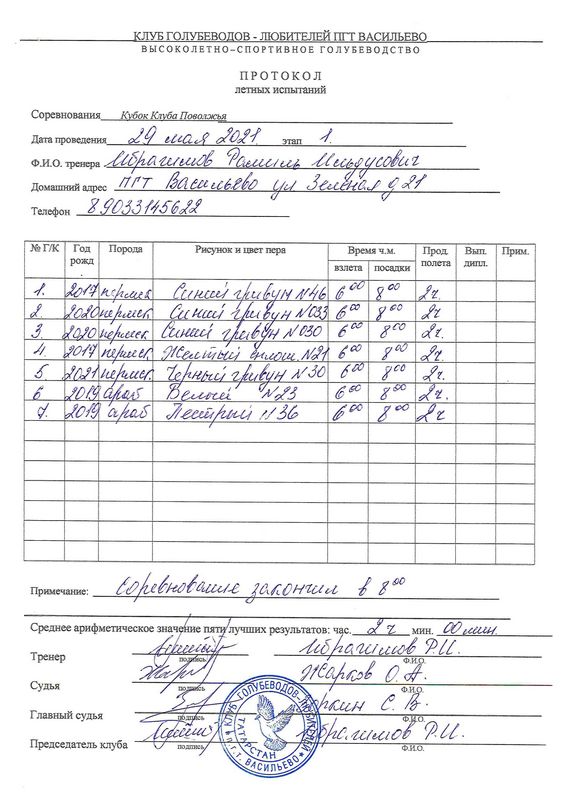 КЛУБ ГОЛУБЕВОДОВ - ЛЮБИТЕЛЕЙ ПГТ ВАСИЛЬЕВО
ВЫСОКОЛЕТНО–СПОРТИВНОЕ ГОЛУБЕВОДСТВО
ПРОТОКОЛ
летных испытаний
Соревнования Кубок Клуба Поволжья
Дата проведения 29 мая 2021. этап 1.
Ф.И.О. тренера Ибрагимов Рамиль Ильдусович
Домашний адрес ПГТ Васильево ул Зеленая д 21
Телефон 89033145622
№ Г/К Год рожд. Порода Рисунок и цвет пера Время ч.м. взлета посадки Прод. полета Вып. дипл. Прим.
1. 2017 пермск Синий гривун N46 6 00 8 00 2ч.
2. 2020 пермск Синий гривун N033 6 00 8 00 2ч.
3. 2020 пермск Синий гривун N030 6 00 8 00 2ч.
4. 2017 пермск Желтый сплош. N21 6 00 8 00 2ч.
5 2021 пермск. Черный гривун N30 6 00 8 00 2ч.
6 2019 араб Белый N23 6 00 8 00 2ч.
7. 2019 араб Пестрый N36 6 00 8 00 2ч
Примечание: Соревнование закончил в 8 00
Среднее арифметическое значение пяти лучших результатов: час. 2 ч мин. 00 мин.
Тренер подпись Ибрагимов Р.И. Ф.И.О.
Судья подпись Жарков О.А. Ф.И.О.
Главный судья подпись С.В. Ф.И.О.
Председатель клуба подпись Ибрагимов Р.И. Ф.И.О.
КЛУБ ГОЛУБЕВОДОВ-ЛЮБИТЕЛЕЙ
ТАТАРСТАН
п.г.т. ВАСИЛЬЕВО